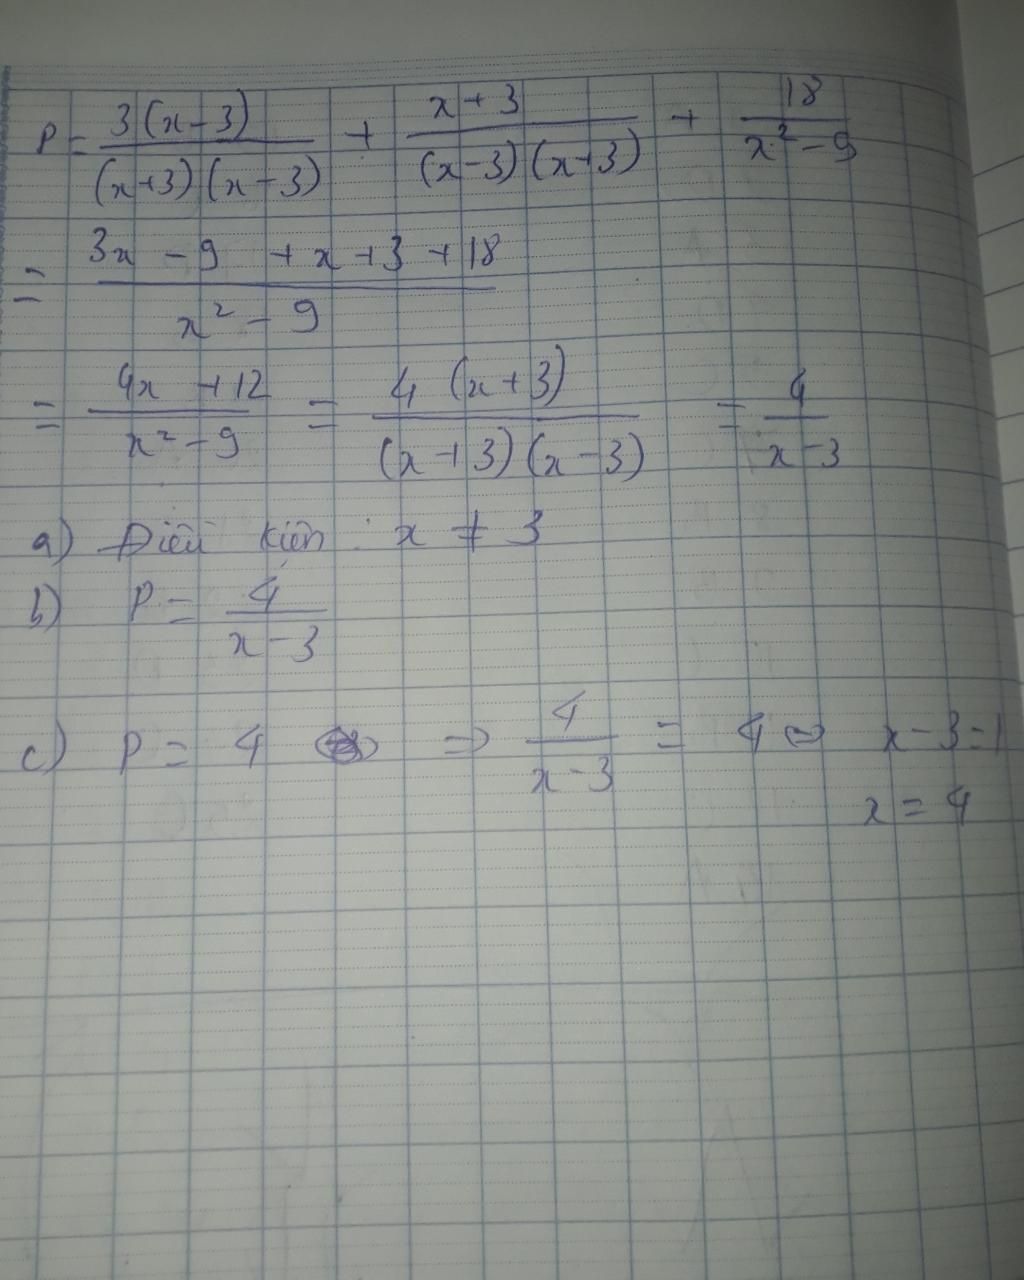 P = \frac{3(x-3)}{(x+3)(x-3)} + \frac{x+3}{(x-3)(x+3)} + \frac{18}{x^2-9}
= \frac{3x - 9 + x + 3 + 18}{x^2 - 9}
= \frac{4x + 12}{x^2 - 9} = \frac{4(x+3)}{(x+3)(x-3)} = \frac{4}{x-3}
a) Điều kiện : x ≠ 3
b) P = \frac{4}{x-3}
c) P = 4 ⇒ \frac{4}{x-3} = 4 ⇔ x - 3 = 1
x = 4